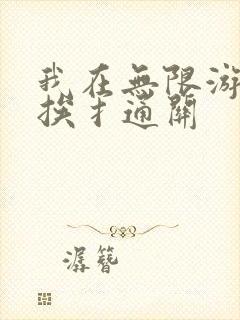 我在無限游
挨扌通關
潺簪